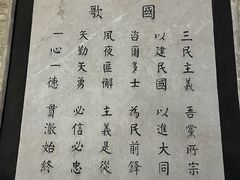 國歌
三民主義 吾黨所宗
以建民國 以進大同
咨爾多士 為民前鋒
夙夜匪懈 主義是從
矢勤矢勇 必信必忠
一心一德 貫澈始終